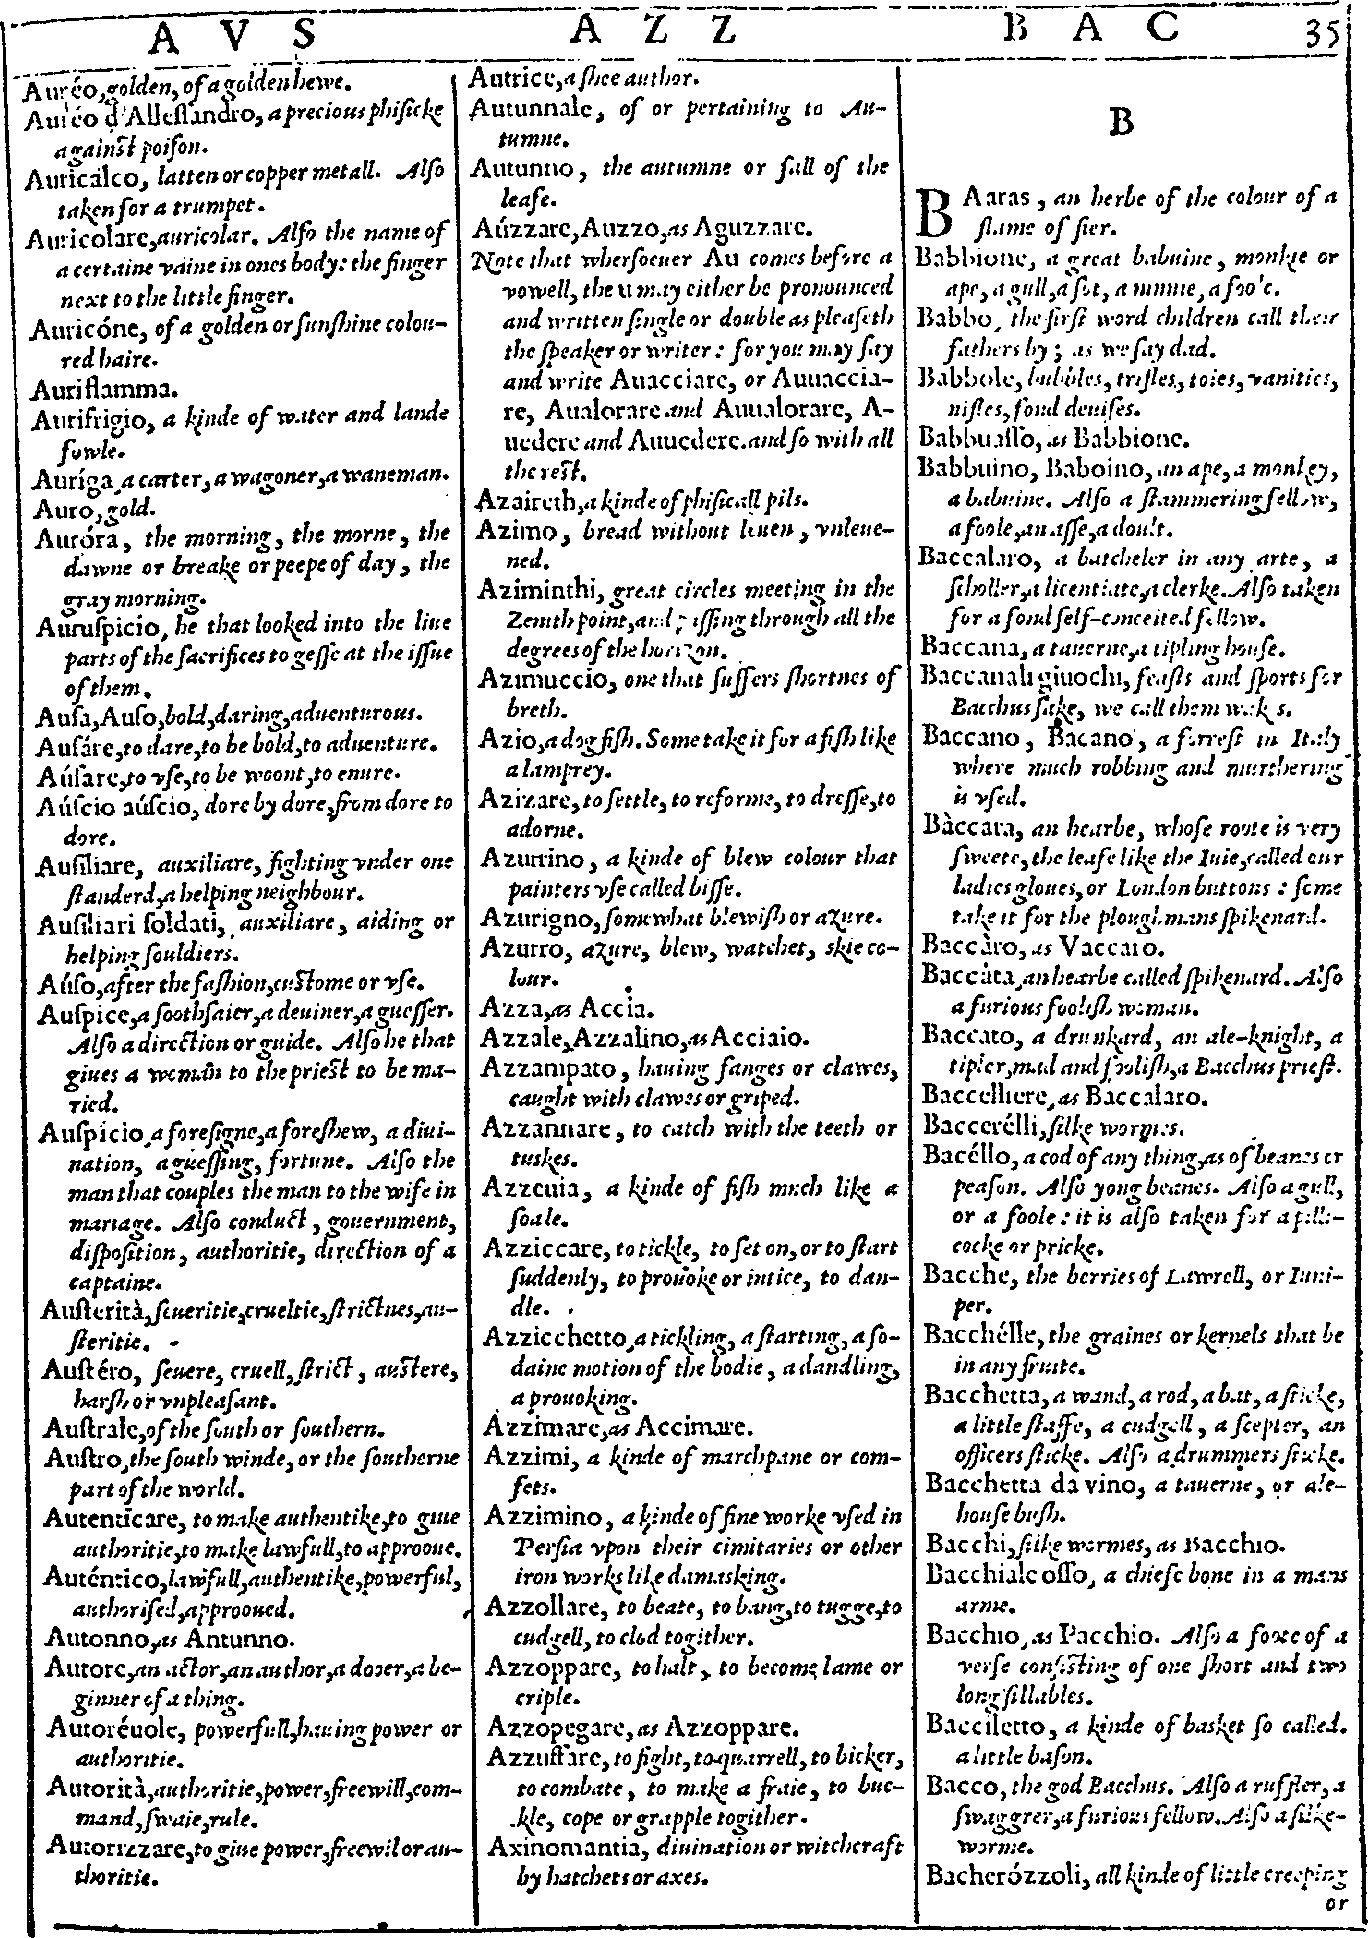 AVS AZZ BAC 35
Auréo, golden, of a golden hewe.
Auréo d'Allessandro, a precious phisicke
against poison.
Auricalco, latten or copper metall. Also
taken for a trumpet.
Auricolare, auricolar. Also the name of
a certaine vaine in ones body: the finger
next to the little finger.
Auricóne, of a golden or sunshine colou-
red haire.
Auriflamma.
Aurifrigio, a kinde of water and lande
fowle.
Auríga, a carter, a wagoner, a waneman.
Auro, gold.
Auróra, the morning, the morne, the
dawne or breake or peepe of day, the
gray morning.
Auruspicio, he that looked into the live
parts of the sacrifices to gesse at the issue
of them.
Ausa, Auso, bold, daring, aduenturous.
Ausáre, to dare, to be bold, to aduenture.
Aúsare, to vse, to be woont, to enure.
Aúscio aúscio, dore by dore, from dore to
dore.
Ausiliare, auxiliare, fighting vnder one
standerd, a helping neighbour.
Ausiliari soldati, auxiliare, aiding or
helping souldiers.
Aúso, after the fashion, custome or vse.
Auspice, a soothsaier, a deuiner, a guesser.
Also a direction or guide. Also he that
giues a woman to the priest to be ma-
ried.
Auspicio, a foresigne, a foreshew, a diui-
nation, a guessing, fortune. Also the
man that couples the man to the wife in
mariage. Also conduct, gouernment,
disposition, authoritie, direction of a
captaine.
Austerità, seueritie, crueltie, strictnes, au-
steritie.
Austéro, seuere, cruell, strict, austere,
harsh or vnpleasant.
Australe, of the south or southern.
Austro, the south winde, or the southerne
part of the world.
Autenticare, to make authentike, to giue
authoritie, to make lawfull, to approoue.
Auténtico, lawfull, authentike, powerful,
authorised, approoued.
Autonno, as Antunno.
Autore, an actor, an author, a dooer, a be-
ginner of a thing.
Autoréuole, powerfull, hauing power or
authoritie.
Autorità, authoritie, power, freewill, com-
mand, swaie, rule.
Autorizzare, to giue power, freewil or au-
thoritie.
Autrice, a shee author.
Autunnale, of or pertaining to Au-
tumne.
Autunno, the autumne or fall of the
leafe.
Aúzzare, Auzzo, as Aguzzare.
Note that whersoeuer Au comes before a
vowell, the u may either be pronounced
and written single or double as pleaseth
the speaker or writer: for you may say
and write Auacciare, or Auuaccia-
re, Aualorare and Auualorare, A-
uedere and Auuedere. and so with all
the rest.
Azaireth, a kinde of phisicall pils.
Azimo, bread without leuen, vnleue-
ned.
Aziminthi, great circles meeting in the
Zenith point, and passing through all the
degrees of the horizon.
Azimuccio, one that suffers shortnes of
breth.
Azio, a dog fish. Some take it for a fish like
a lamprey.
Azizare, to settle, to reforme, to dresse, to
adorne.
Azurrino, a kinde of blew colour that
painters vse called bisse.
Azurigno, somewhat blewish or azure.
Azurro, azure, blew, watchet, skie co-
lour.
Azza, as Accia.
Azzale, Azzalino, as Acciaio.
Azzampato, hauing fanges or clawes,
caught with clawes or griped.
Azzannare, to catch with the teeth or
tuskes.
Azzeuia, a kinde of fish much like a
soale.
Azziccare, to tickle, to set on, or to start
suddenly, to prouoke or intice, to dan-
dle.
Azzicchetto, a tickling, a starting, a so-
daine motion of the bodie, a dandling,
a prouoking.
Azzimare, as Accimare.
Azzimi, a kinde of marchpane or com-
fets.
Azzimino, a kinde of fine worke vsed in
Persia vpon their cimitaries or other
iron works like damasking.
Azzollare, to beate, to bang, to tugge, to
cudgell, to clod togither.
Azzoppare, to halt, to become lame or
criple.
Azzopegare, as Azzoppare.
Azzuffare, to fight, to quarrell, to bicker,
to combate, to make a fraie, to buc-
kle, cope or grapple togither.
Axinomantia, diuination or witchcraft
by hatchets or axes.
B
BAaras, an herbe of the colour of a
flame of fier.
Babbione, a great babuine, monkie or
ape, a gull, a sot, a ninnie, a foole.
Babbo, the first word children call their
fathers by; as we say dad.
Babbole, bubbles, trifles, toies, vanities,
nifles, fond deuises.
Babbuasso, as Babbione.
Babbuino, Baboino, an ape, a monkey,
a babuine. Also a stammering fellow,
a foole, an asse, a doult.
Baccalaro, a batcheler in any arte, a
scholler, a licentiate, a clerke. Also taken
for a fond self-conceited fellow.
Baccana, a tauerne, a tipling house.
Baccanali giuochi, feasts and sports for
Bacchus sake, we call them wakes.
Baccano, Bacano, a forrest in Italy
where much robbing and murthering
is vsed.
Bàccara, an hearbe, whose roote is very
sweete, the leafe like the Iuie, called our
ladies gloues, or London buttons: some
take it for the ploughmans spikenard.
Baccàro, as Vaccaro.
Baccàta, an hearbe called spikenard. Also
a furious foolish woman.
Baccato, a drunkard, an ale-knight, a
tipler, mad and foolish, a Bacchus priest.
Baccelliere, as Baccalaro.
Baccerélli, silke wormes.
Bacéllo, a cod of any thing, as of beanes or
peason. Also yong beanes. Also a gull,
or a foole: it is also taken for a pilli-
cocke or pricke.
Bacche, the berries of Lawrell, or Iuni-
per.
Bacchélle, the graines or kernels that be
in any fruite.
Bacchetta, a wand, a rod, a bat, a sticke,
a little staffe, a cudgell, a scepter, an
officers sticke. Also a drummers sticke.
Bacchetta da vino, a tauerne, or ale-
house bush.
Bacchi, silke wormes, as Bacchio.
Bacchialcosso, a chiefe bone in a mans
arme.
Bacchio, as Pacchio. Also a foote of a
verse consisting of one short and two
long sillables.
Bacciletto, a kinde of basket so called.
a little bason.
Bacco, the god Bacchus. Also a ruffler, a
swaggrer, a furious fellow. Also a silke-
worme.
Bacherózzoli, all kinde of little creeping
or